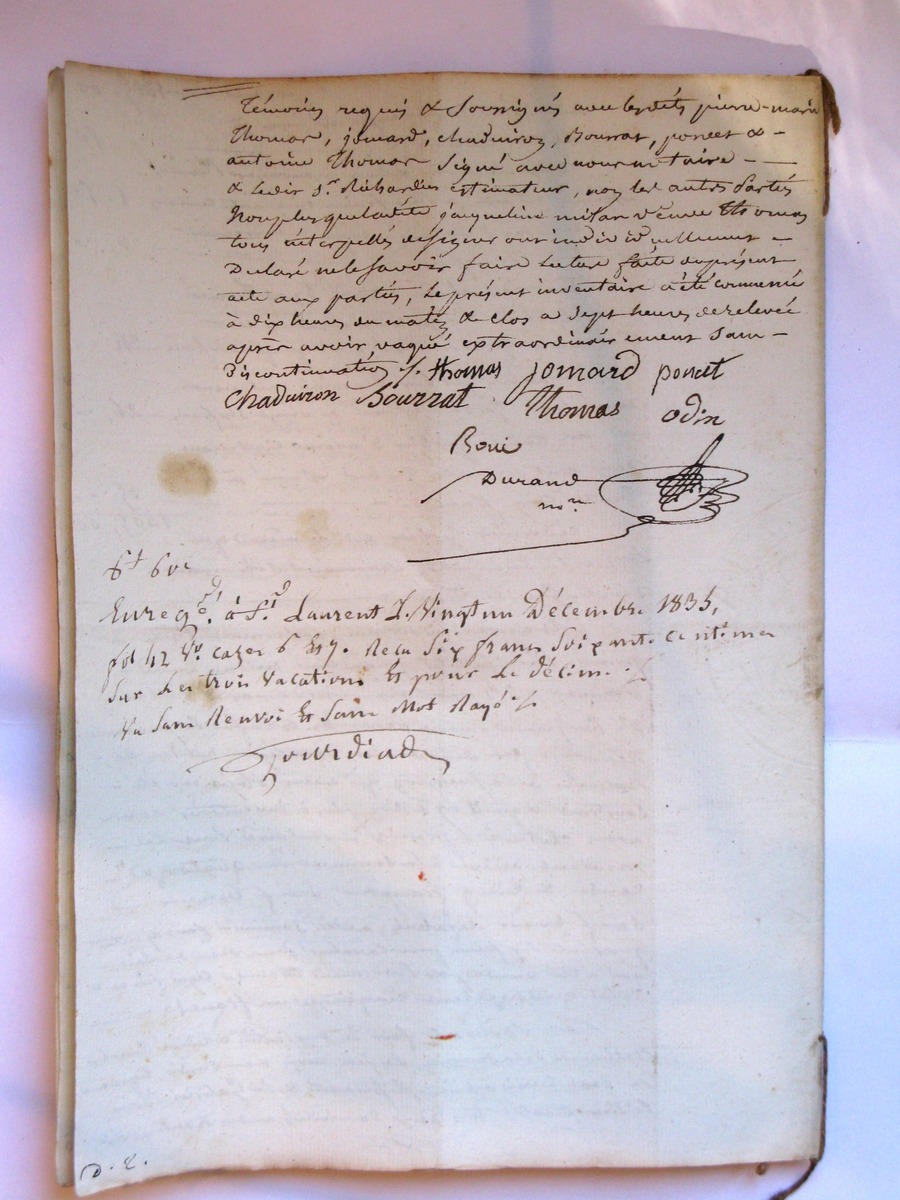 témoins requis & soussignés avec lesdits pierre-marie
Thomas, jomard, chaduiron, Bourrat, poncet & -
antoine Thomas signé avec nous notaire -
& ledit Sr. Richardier estimateur, non les autres parties
non plus que ladite jacqueline milan veuve Thomas
tous interpellés de signer ont individuellement -
Déclaré ne le savoir faire Lecture faite du présent
acte aux parties, le présent inventaire a été commencé
à dix heures du matin & clos a sept heures de relevée
après avoir vaqué extraordinairement sans -
Discontinuation ./. thomas jomard poncet
Chaduiron Bourrat Thomas odin
Durand
nore
6f 60c
Enregé. à St. Laurent Le Vingt un Décembre 1835,
fol 42 Vo. cazes 6 Et 7. Reçu Six francs soixante centimes
sur Les trois Vacations Et pour Le décime ./.
Vu sans Renvoi Et sans Mot Rayé ./.
D. E.